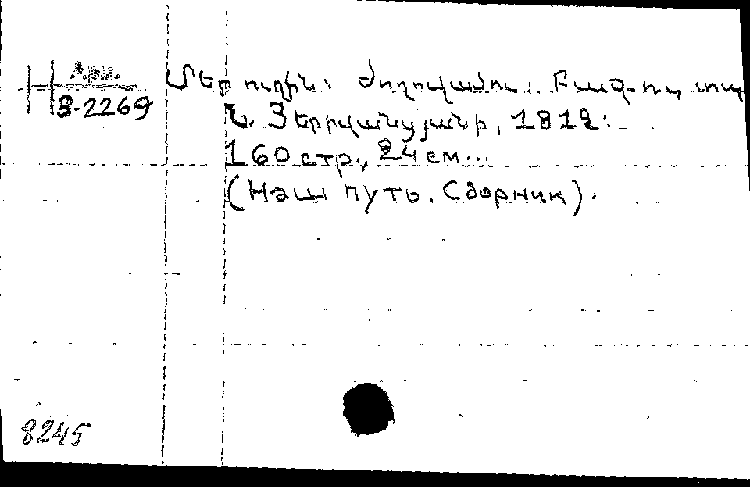 Арм.
3-2269
Մեր ուղին: Ժողովածու: Բաքու, տպ
Ն. Յերիվանցյանի, 1912:
160 стр., 24 см.
(Наш путь. Сборник).
8245